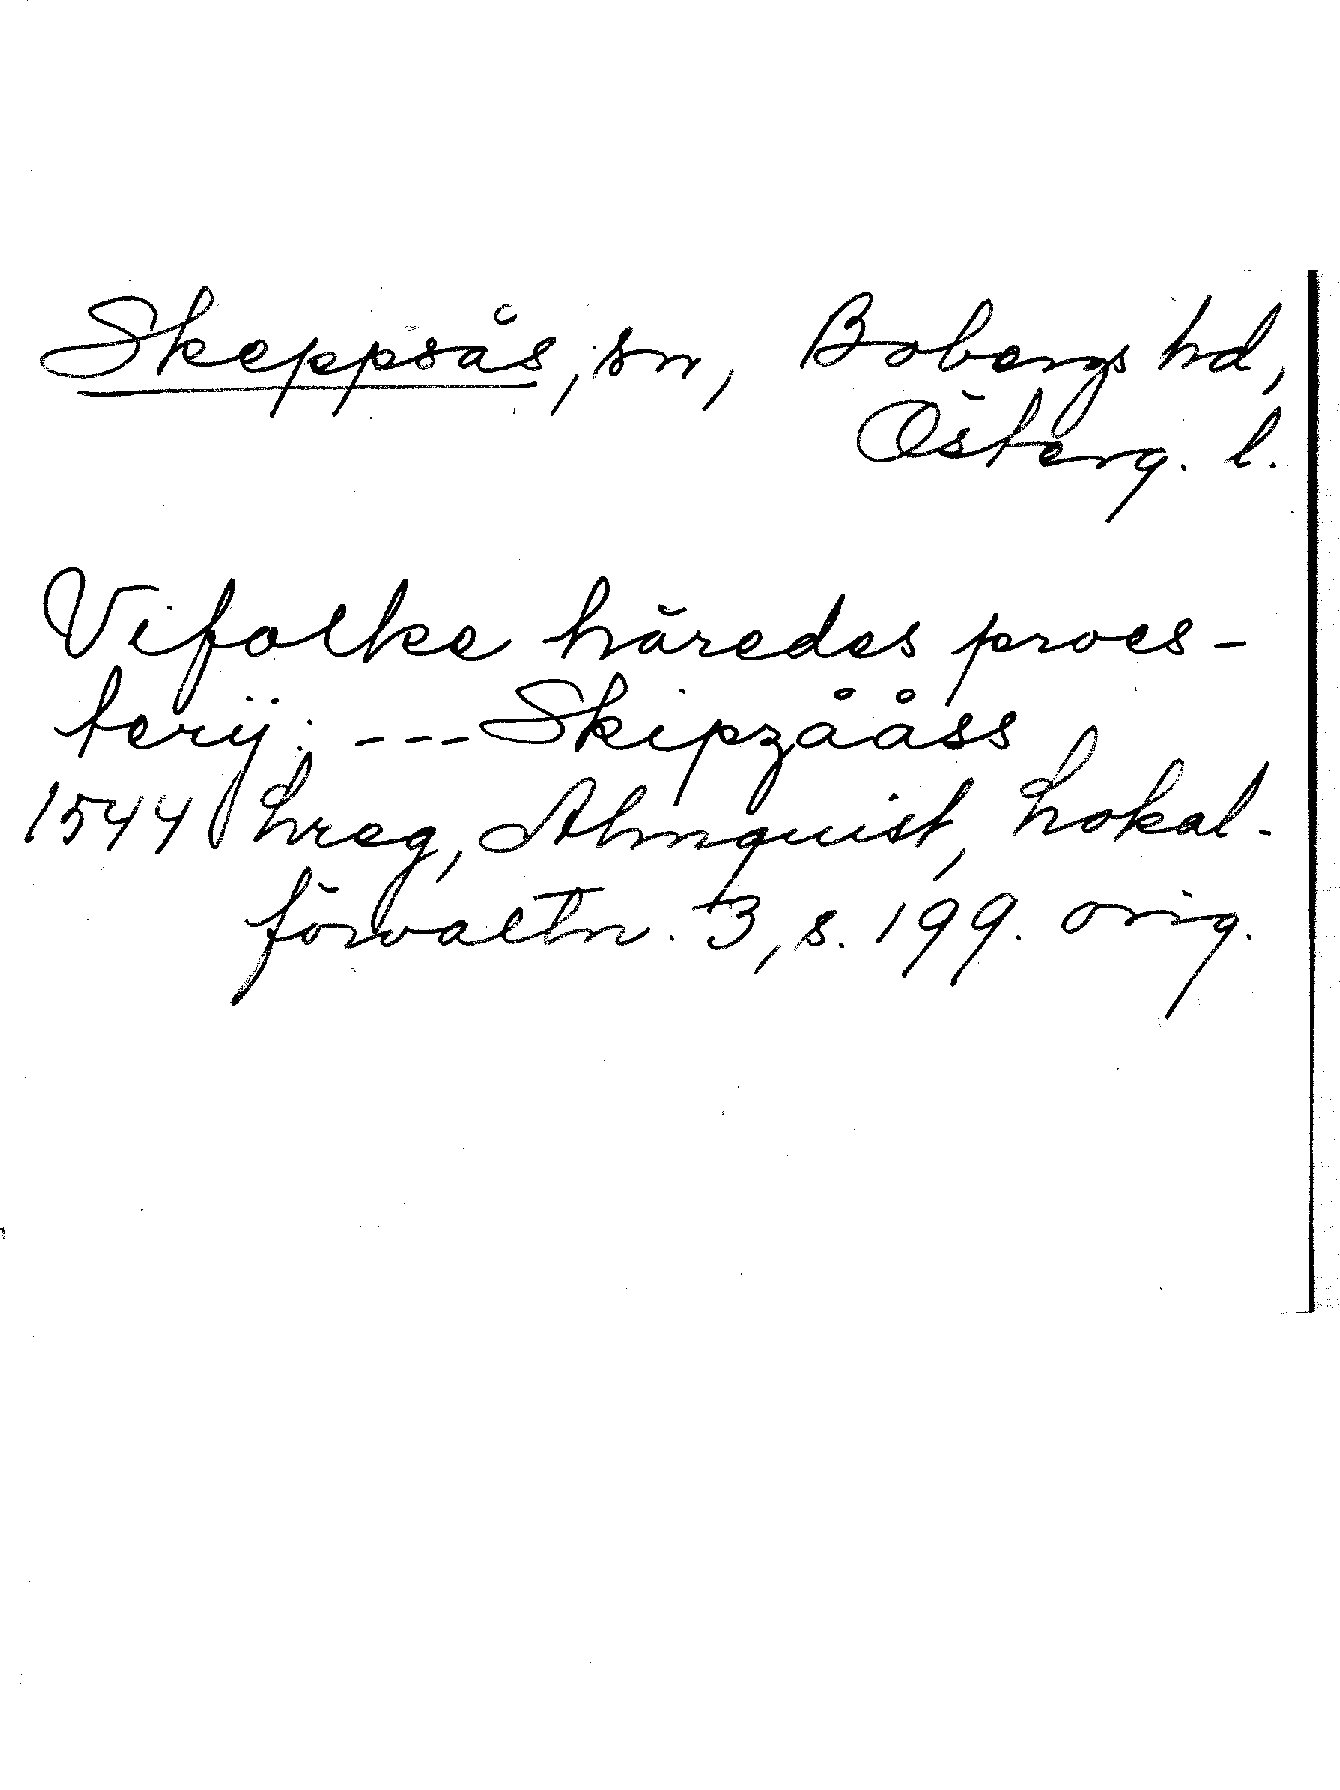 Skeppsås, sn, Bobergs hd,
Österg. l.
Vifolke häredes proes-
terij: --- Skipzååss
1544 Lreg, Almquist, Lokal-
förvaltn. 3, s. 199. orig.